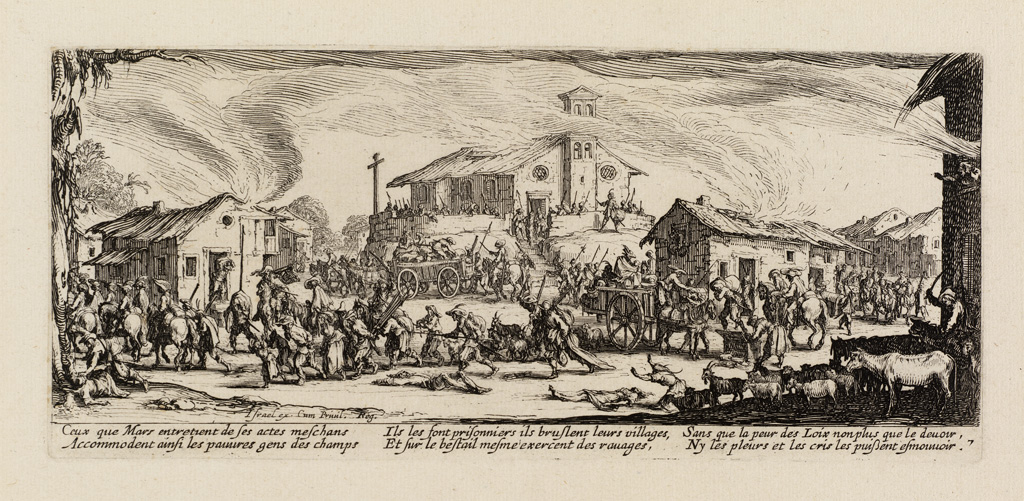 Israel ex. Cum Privil. Reg.
Ceux que Mars entretient de ses actes meschans
Accommodent ainsi les pauures gens des champs
Ils les font prisonniers ils bruslent leurs villages,
Et sur le bestail mesme exercent des rauages,
Sans que la peur des Loix non plus que le deuoir,
Ny les pleurs et les cris les puissent esmouuoir.
7